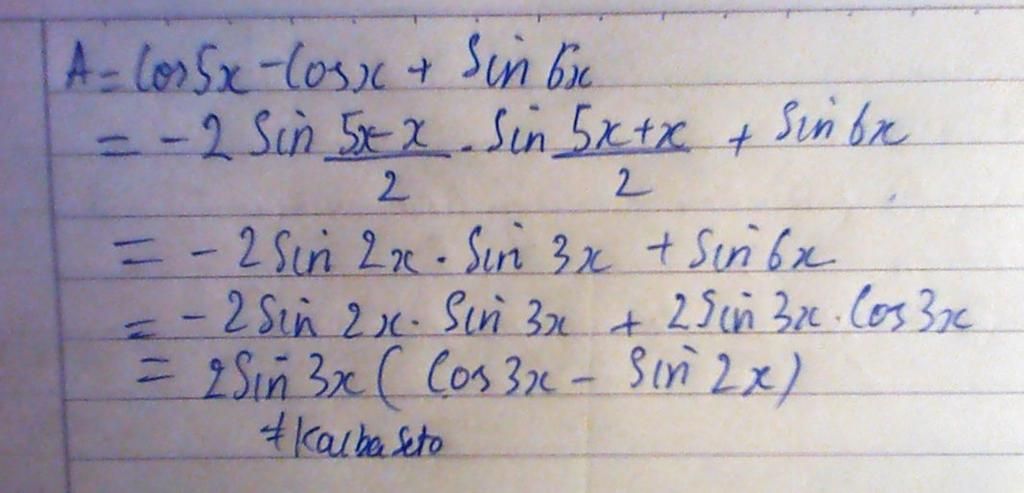 A = Cos5x - Cosx + Sin 6x
= -2 Sin (5x-x)/2 . Sin (5x+x)/2 + Sin 6x
= -2 Sin 2x . Sin 3x + Sin 6x
= -2 Sin 2x . Sin 3x + 2 Sin 3x . Cos 3x
= 2 Sin 3x ( Cos 3x - Sin 2x )